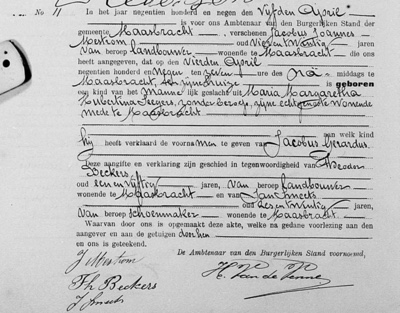 No. 11 In het jaar negentien honderd en negen den Vijfden April
is voor ons Ambtenaar van den Burgerlijken Stand der
gemeente Maasbracht, verschenen Jacobus Joannes
Mestrom oud Vier en twintig jaren
van beroep landbouwer wonende te Maasbracht die ons
heeft aangegeven, dat op den Vierden April
negentien honderd en negen ten zeven ure des na middags te
Maasbracht, te zijnen huize is geboren
een kind van het Manne lijk geslacht uit Maria Margaretha
Hubertina Seegers, zonder beroep, zijne echtgenoote wonende
mede te Maasbracht
aan welk kind
hij heeft verklaard de voornamen te geven van Jacobus Gerardus.
Deze aangifte en verklaring zijn geschied in tegenwoordigheid van Theodor
Beckers
oud een en vijftig jaren, van beroep landbouwer
wonende te Maasbracht en van Jan Smeets
oud zes en twintig jaren,
van beroep schoenmaker wonende te Maasbracht.
Waarvan door ons is opgemaakt deze akte, welke na gedane voorlezing aan den
aangever en aan de getuigen door hen
en ons is geteekend.
De Ambtenaar van den Burgerlijken Stand voornoemd,
J Mestrom
Th Beckers
J Smeets
H. van de Venne